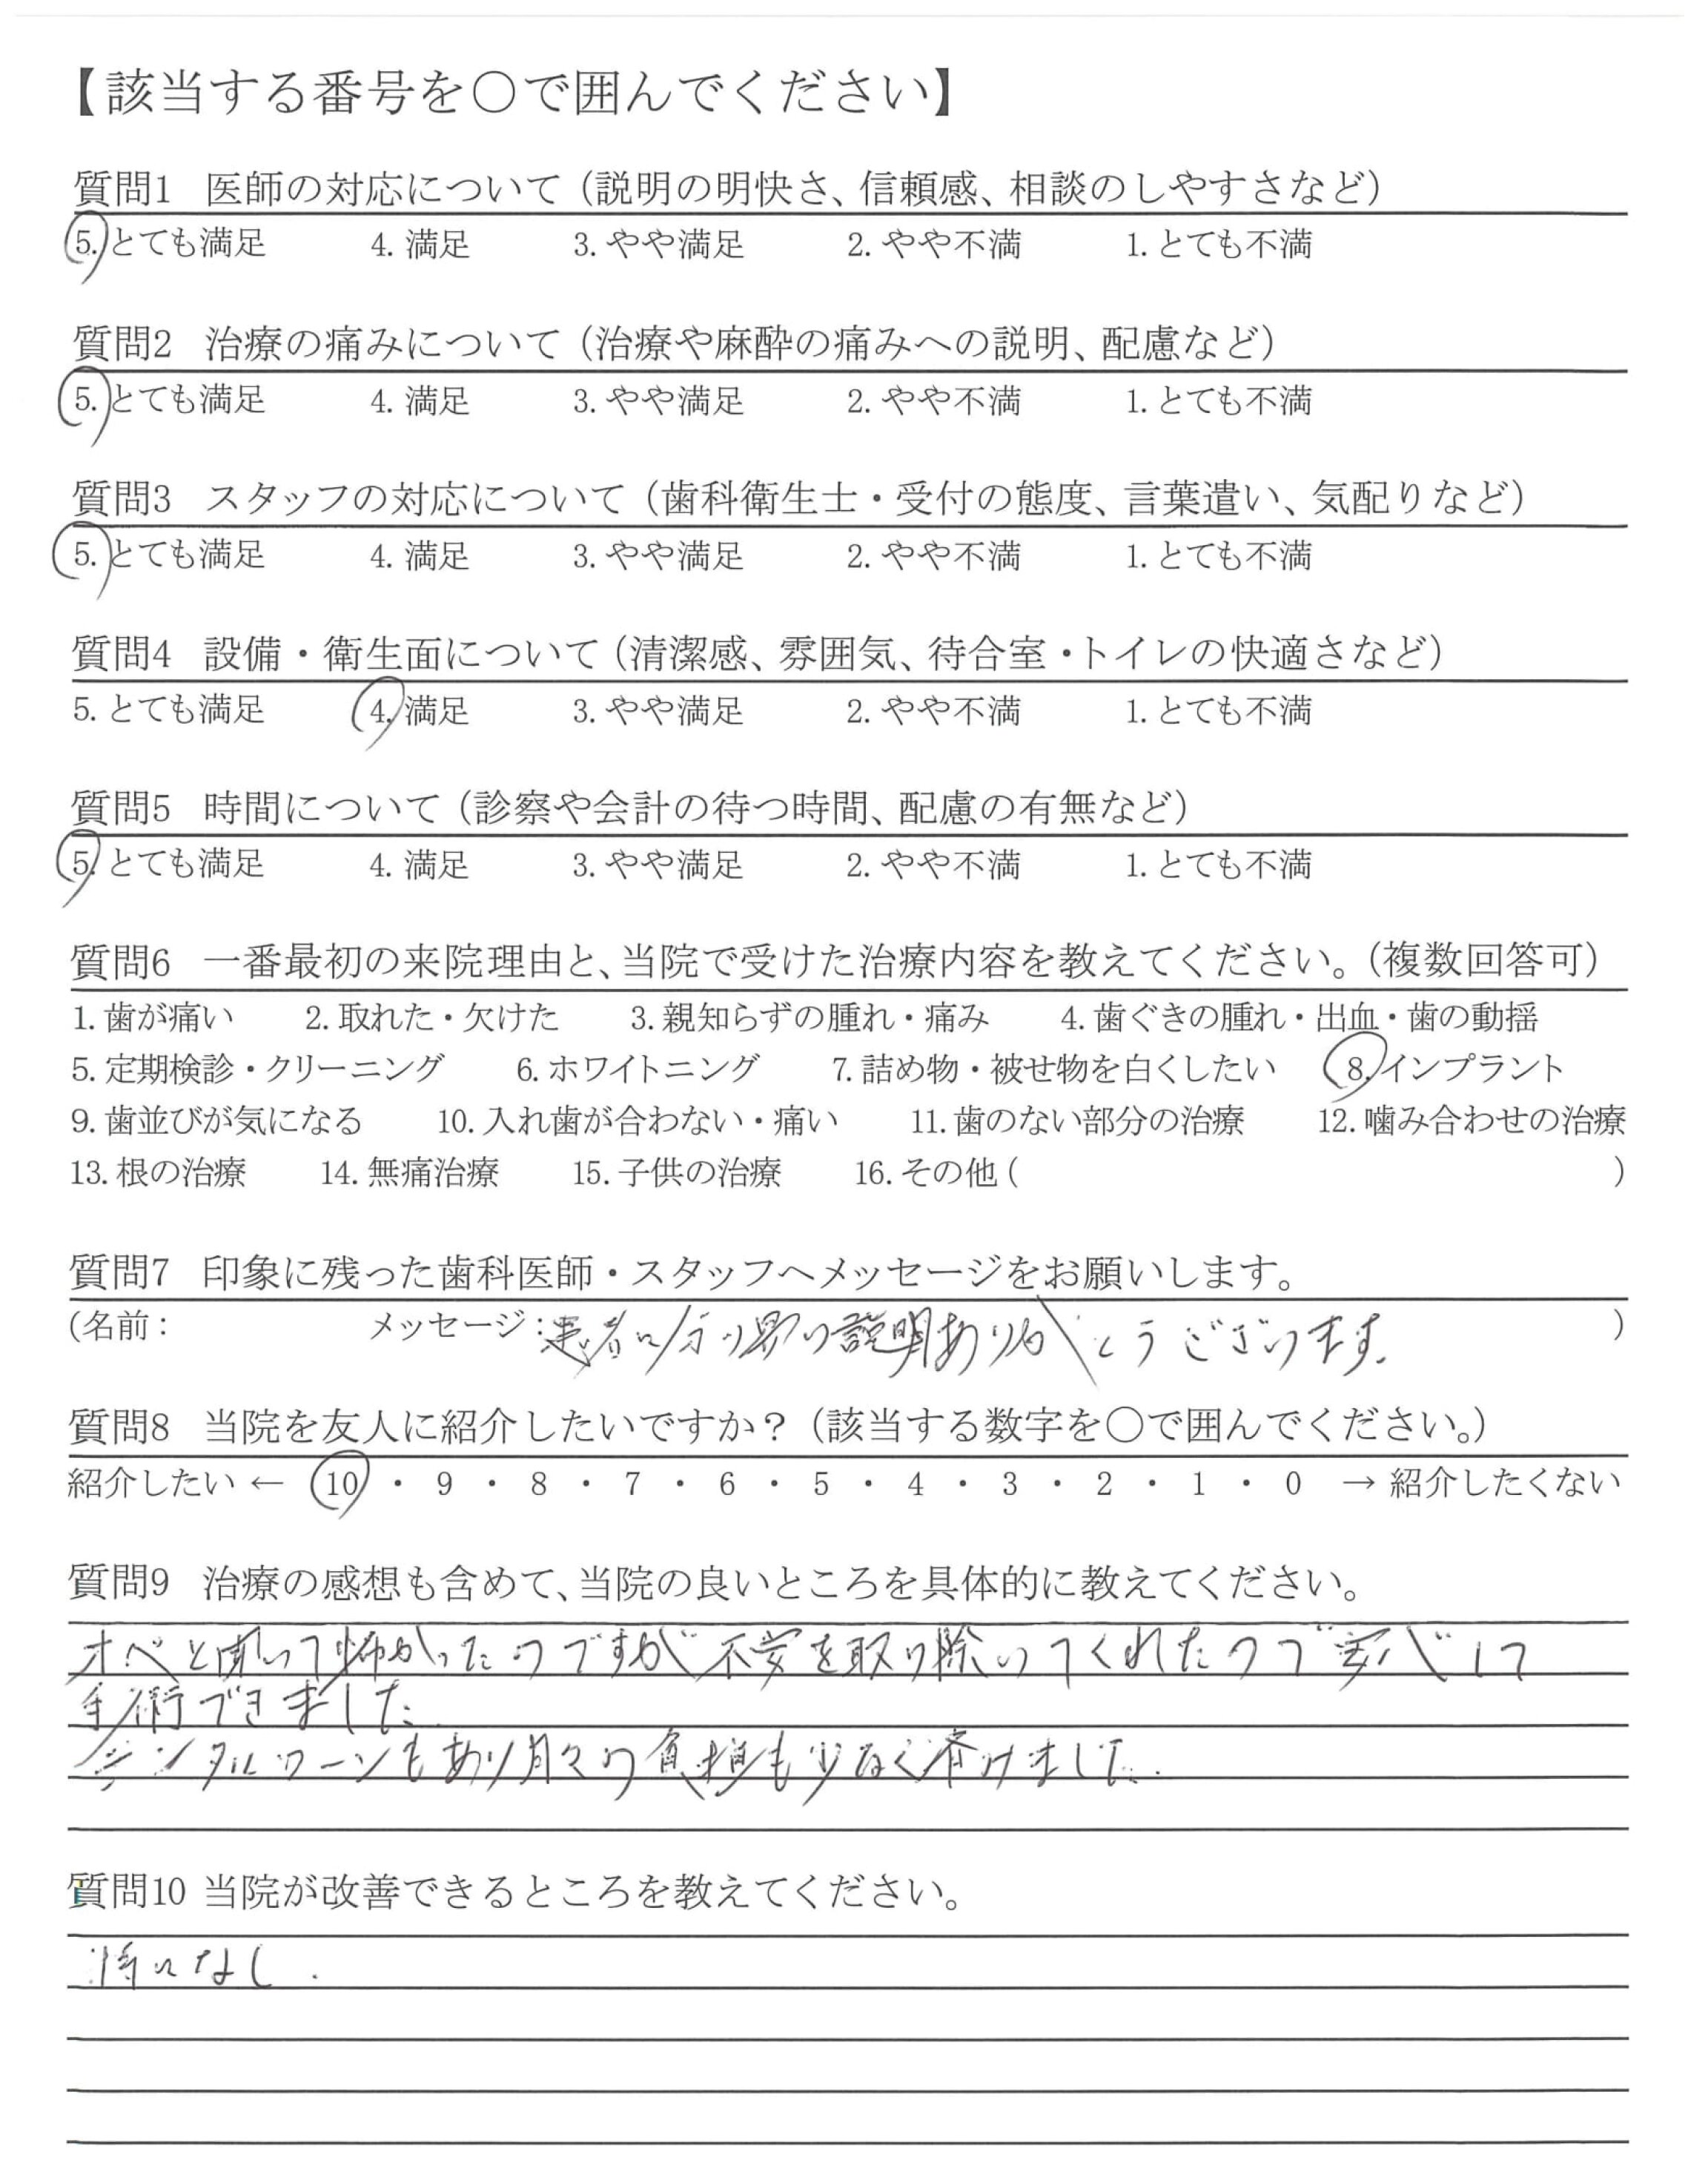 【該当する番号を○で囲んでください】
質問1 医師の対応について（説明の明快さ、信頼感、相談のしやすさなど）
5. とても満足 4. 満足 3. やや満足 2. やや不満 1. とても不満
質問2 治療の痛みについて（治療や麻酔の痛みへの説明、配慮など）
5. とても満足 4. 満足 3. やや満足 2. やや不満 1. とても不満
質問3 スタッフの対応について（歯科衛生士・受付の態度、言葉遣い、気配りなど）
5. とても満足 4. 満足 3. やや満足 2. やや不満 1. とても不満
質問4 設備・衛生面について（清潔感、雰囲気、待合室・トイレの快適さなど）
5. とても満足 4. 満足 3. やや満足 2. やや不満 1. とても不満
質問5 時間について（診察や会計の待つ時間、配慮の有無など）
5. とても満足 4. 満足 3. やや満足 2. やや不満 1. とても不満
質問6 一番最初の来院理由と、当院で受けた治療内容を教えてください。（複数回答可）
1. 歯が痛い 2. 取れた・欠けた 3. 親知らずの腫れ・痛み 4. 歯ぐきの腫れ・出血・歯の動揺
5. 定期検診・クリーニング 6. ホワイトニング 7. 詰め物・被せ物を白くしたい 8. インプラント
9. 歯並びが気になる 10. 入れ歯が合わない・痛い 11. 歯のない部分の治療 12. 噛み合わせの治療
13. 根の治療 14. 無痛治療 15. 子供の治療 16. その他 ( )
質問7 印象に残った歯科医師・スタッフへメッセージをお願いします。
(名前： メッセージ：患者に分り易い説明ありがとうございます。 )
質問8 当院を友人に紹介したいですか？（該当する数字を○で囲んでください。）
紹介したい ← 10 ・ 9 ・ 8 ・ 7 ・ 6 ・ 5 ・ 4 ・ 3 ・ 2 ・ 1 ・ 0 → 紹介したくない
質問9 治療の感想も含めて、当院の良いところを具体的に教えてください。
オペと聞いて怖かったのですが不安を取り除いてくれたので安心して
手術できました
デンタルローンもあり月々の負担も少なく済みました。
質問10 当院が改善できるところを教えてください。
特になし.